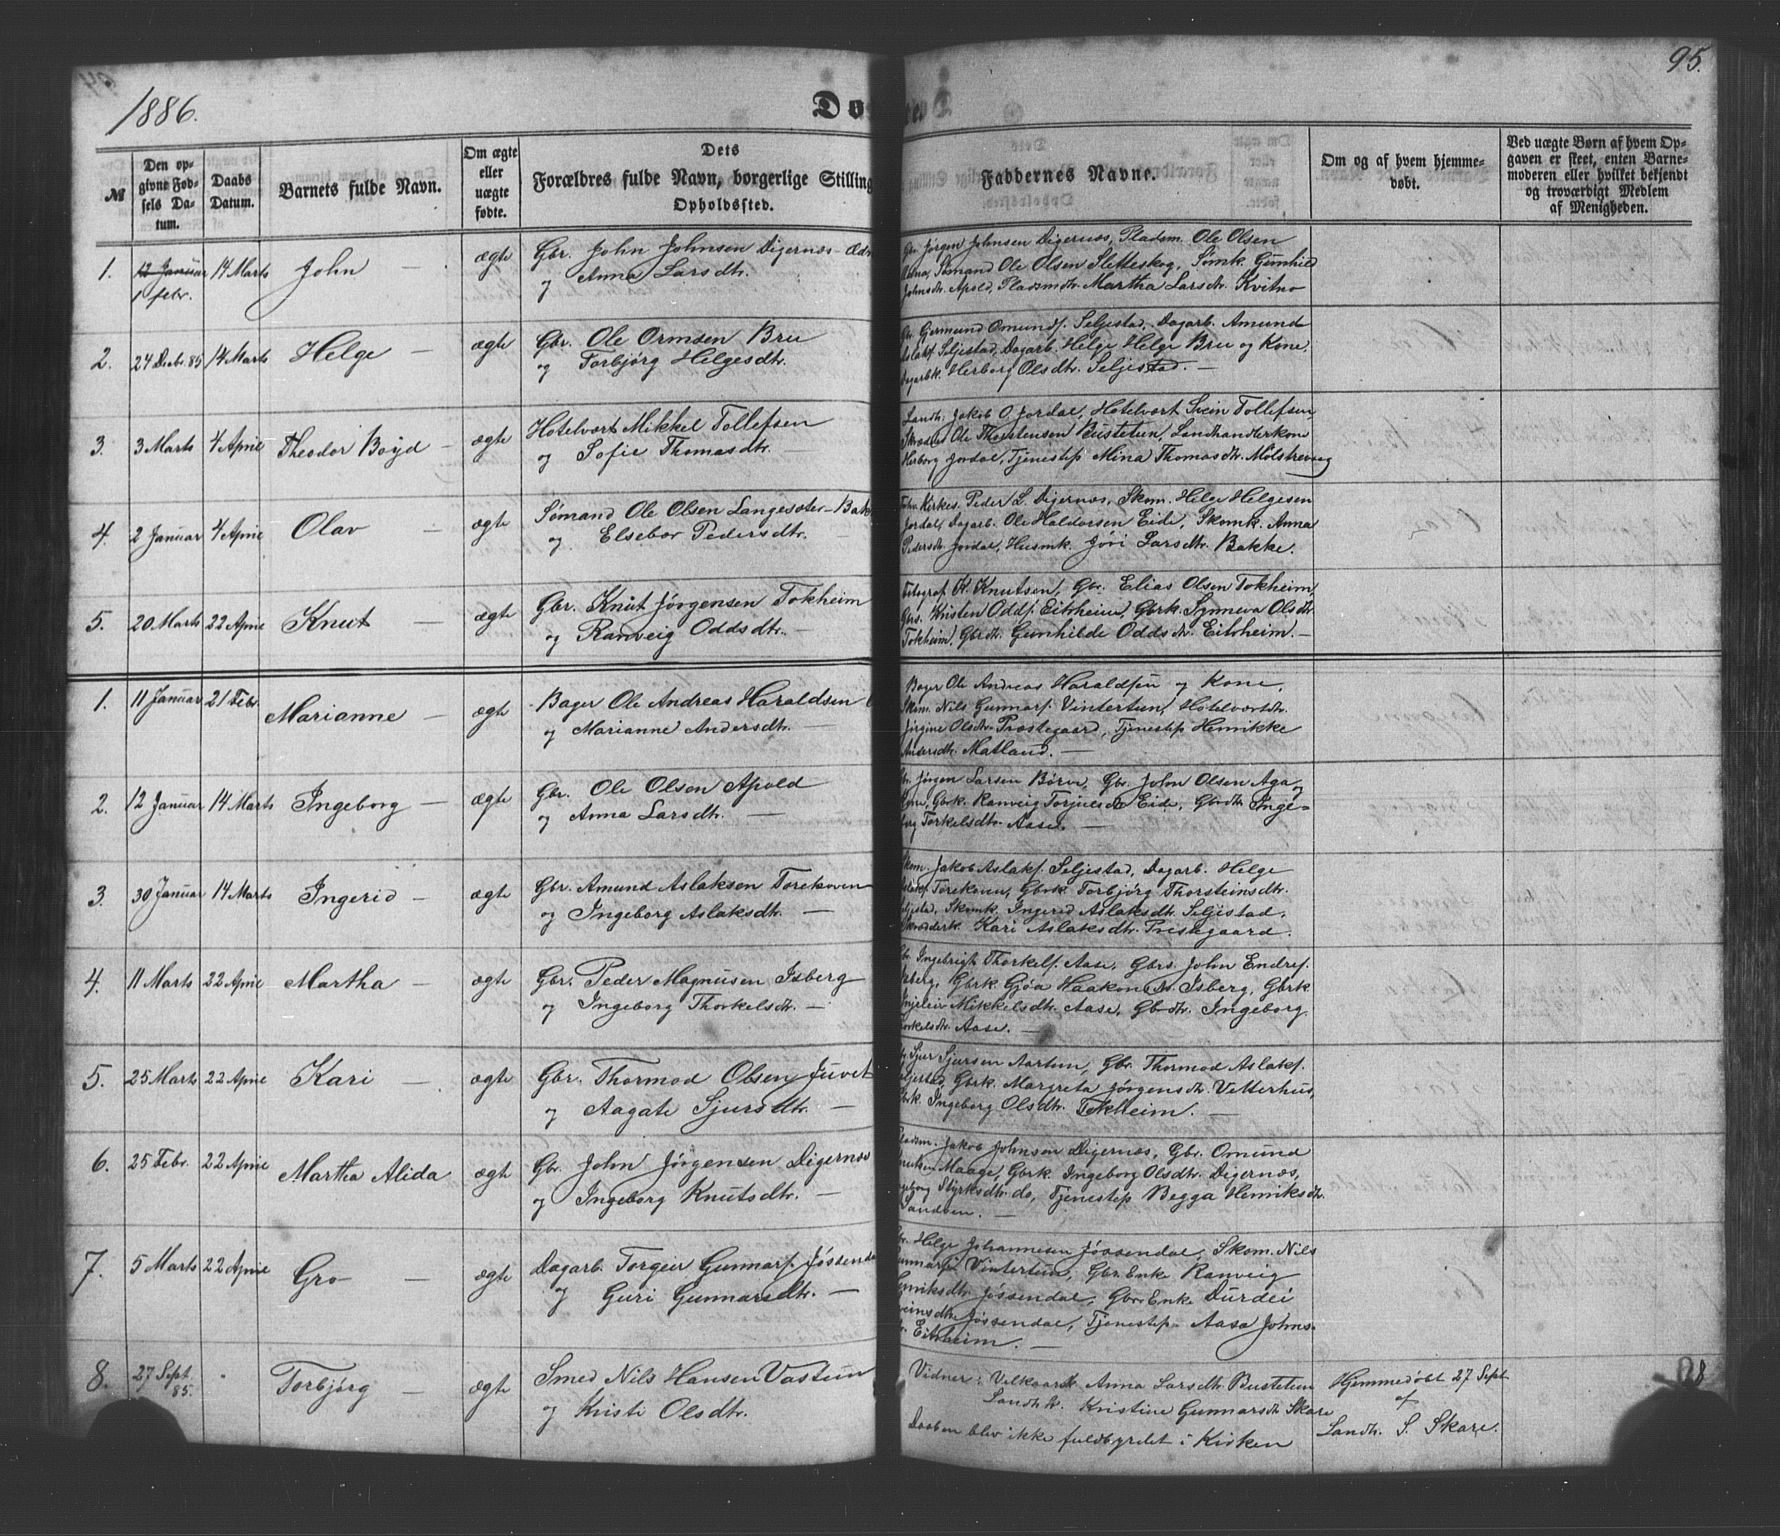 1886.
95.
Dø
№
Den opgivne Fødsels Datum.
Daabs Datum.
Barnets fulde Navn.
Om ægte eller uægte fødte.
Dets Forældres fulde Navn, borgerlige Stilling
Opholdssted.
Faddernes Navne.
Om og af hvem hjemmedøbt.
Ved uægte Børn af hvem Opgaven er skeet, enten Barnemoderen eller hvilket bekjendt og troværdigt Medlem af Menigheden.
1. 12 Januar 14 Marts John — ægte Gbr. John Johnsen Digernæs
1 febr. og Anna Larsdtr.
Gbr. Jørgen Johnsen Digernæs, Pladsm. Ole Olsen
Sømand Ole Olsen Sletteskog, Sømk. Gunhild
Johnsdtr. Apold, Pladsmdtr. Martha Larsdtr. Kvitno
2. 24 Decbr. 85 14 Marts Helge — ægte Gbr. Ole Ormsen Bru
og Torbjørg Helgesdtr.
Germund Omundf. Seljestad, Dagarb. Amund
Aslakf. Seljestad, Dagarb. Helge Helge Bru og Kone,
Dagarbk. Herborg Olsdtr. Seljestad. —
3. 3 Marts 4 April Theodor Boyd — ægte Hotelvært Mikkel Tollefsen
og Sofie Thomasdtr. —
Landh. Jakob O. Jordal, Hotelvært Svein Tollefsen
Skrædder Ole Thorstensen Bustetun, Landhandlerkone
Herborg Jordal, Tjenestep. Mina Thomasdtr. Molstrevaag
4. 2 Januar 4 April Olav — ægte Sømand Ole Olsen Langesæter - Bak
og Elsebor Pedersdtr. —
Kirkes. Peder L. Digernæs, Skom. Helge Helgesen
Jordal, Dagarb. Ole Haldorsen Eide, Skomk. Anna
Pedersdtr. Jordal, Husmk. Jori Larsdtr. Bakke.
5. 20 Marts 22 April Knut — ægte Gbr. Knut Jørgensen Tokheim
og Ranveig Oddsdtr. —
Fotograf K. Knutsen, Gbr. Elias Olsen Tokheim,
Gbrs. Kristen Oddf. Eitrheim, Gbrk. Synneva Olsdtr.
Tokheim, Gbrdtr. Gunhilde Oddsdtr. Eitrheim. —
1. 11 Januar 21 Febr. Marianne — ægte Bager Ole Andreas Haraldsen
og Marianne Andersdtr. —
Bager Ole Andreas Haraldsen og Kone,
Skom. Nils Gunnarf. Vintertun, Hotelværtdtr.
Jørgine Olsdtr. Præstegaard, Tjenestep. Henrikke
Andersdtr. Matland. —
2. 12 Januar 14 Marts Ingeborg — ægte Gbr. Ole Olsen Apold
og Anna Larsdtr. —
Gbr. Jørgen Larsen Børve, Gbr. John Olsen Aga og
Kone, Gbrk. Ranveig Torjusdtr. Eide, Gbrdtr. Inge-
borg Torkelsdtr. Aase. —
3. 30 Januar 14 Marts Ingerid — ægte Gbr. Amund Aslaksen Torekoven
og Ingeborg Aslaksdtr. —
Skom. Jakob Aslakf. Seljestad, Dagarb. Helge
Aslakf. Torekoven, Gbrk. Torbjørg Thorsteinsdtr.
Seljestad, Skomk. Ingerid Aslaksdtr. Seljestad,
Skrædderk. Kari Aslaksdtr. Prestegaard.
4. 11 Marts 22 April Martha — ægte Gbr. Peder Magnusen Isberg
og Ingeborg Thorkelsdtr. —
Gbr. Ingebrigt Thorkelf. Aase, Gbrs. John Endref.
Isberg, Gbrk. Gjøa Haakonsdtr. Isberg, Gbrk
Mikkelsdtr. Aase, Gbrdtr. Ingeborg
Torkelsdtr. Aase. —
5. 25 Marts 22 April Kari — ægte Gbr. Thormod Olsen Juvet
og Aagate Sjursdtr. —
Gbr. Sjur Sjursen Aartun, Gbr. Thormod Aslakf.
Seljestad, Gbrk. Margreta Jørgensdtr. Vetterhus,
Gbrk. Ingeborg Olsdtr. Tokheim. —
6. 25 Febr. 22 April Martha Alida ægte Gbr. John Jørgensen Digernæs
og Ingeborg Knutsdtr. —
Pladsm. Jakob Johnsen Digernæs, Gbr. Omund
Knutsen Maage, Gbrk. Ingeborg Olsdtr. Digernæs,
Ingeborg Styrksdtr. do, Tjenestep. Begga Henriksdtr.
Sandven. —
7. 5 Marts 22 April Gro — ægte Dagarb. Torgeir Gunnarf. Jøssendal
og Guri Gunnarsdtr. —
Gbr. Helge Johannesen Jøssendal, Skom. Nils
Gunnarf. Vintertun, Gbr. Enke Ranveig
Henriksdtr. Jøssendal, Gbr. Enke Durdei
Sveinsdtr. Jøssendal, Tjenestep. Aasa Johns-
dtr. Eitrheim. —
8. 27 Sept. 85. Torbjørg — ægte Smed Nils Hansen Vastun
og Kristi Olsdtr.
Vidner: Vilkaarsk. Anna Larsdtr. Bustetun
Landhk. Kristine Gunnarsdtr. Skare
Daaben blev ikke fuldbyrdet i Kirken
Hjemmedøbt 27 Sept
af
Landh. S. Skare.